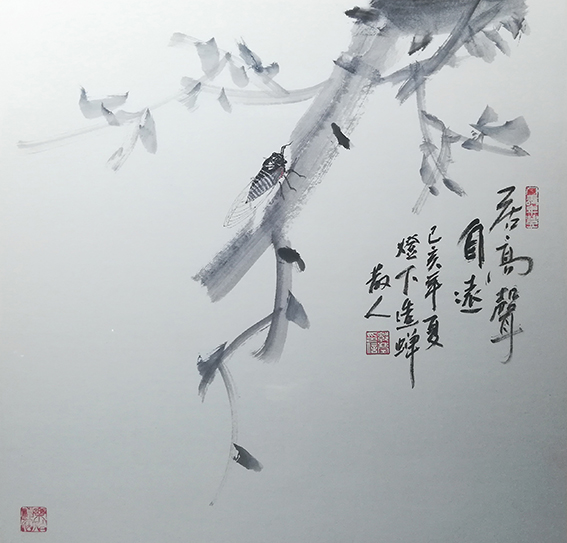 居高聲
自遠
己亥年夏
燈下造蝉
散人